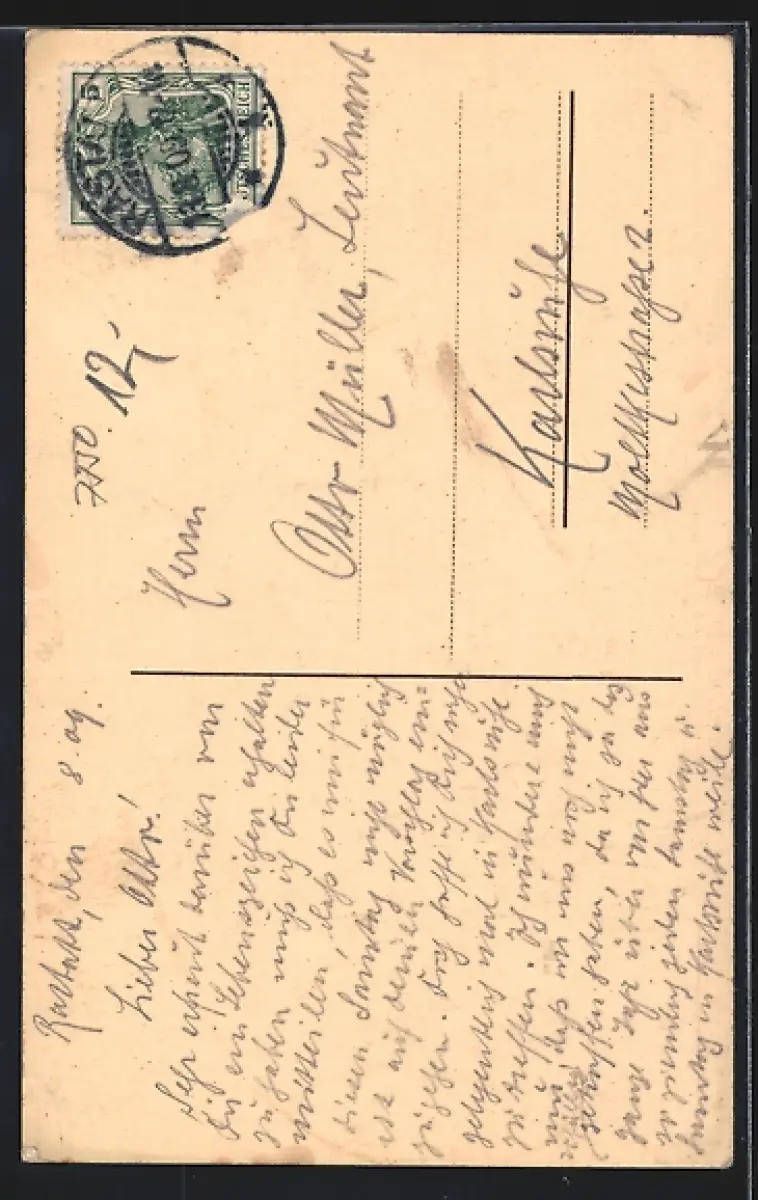 RASTATT
DEUTSCHES REICH
5
12,-
Herrn
Otto Müller, Leutnant
Karlsruhe
Moltkestrasse 2.
Rastatt, den 8. 09.
Lieber Otto!
Sehr erfreut darüber von
Dir ein Lebenszeichen erhalten
zu haben muß ich Dir leider
mitteilen, daß es mir für
diesen Samstag nicht möglich
ist auf deinen Vorschlag ein-
zugehen. Doch hoffe ich Dich
gelegentlich mal in Karlsruhe
zu treffen. Ich wundere mich
nur, daß wir uns noch nicht
getroffen haben, da ich ja das
ganze Jahr über von hier aus
so ziemlich jeden Samstag u.
Sonntag in Karlsruhe weile.